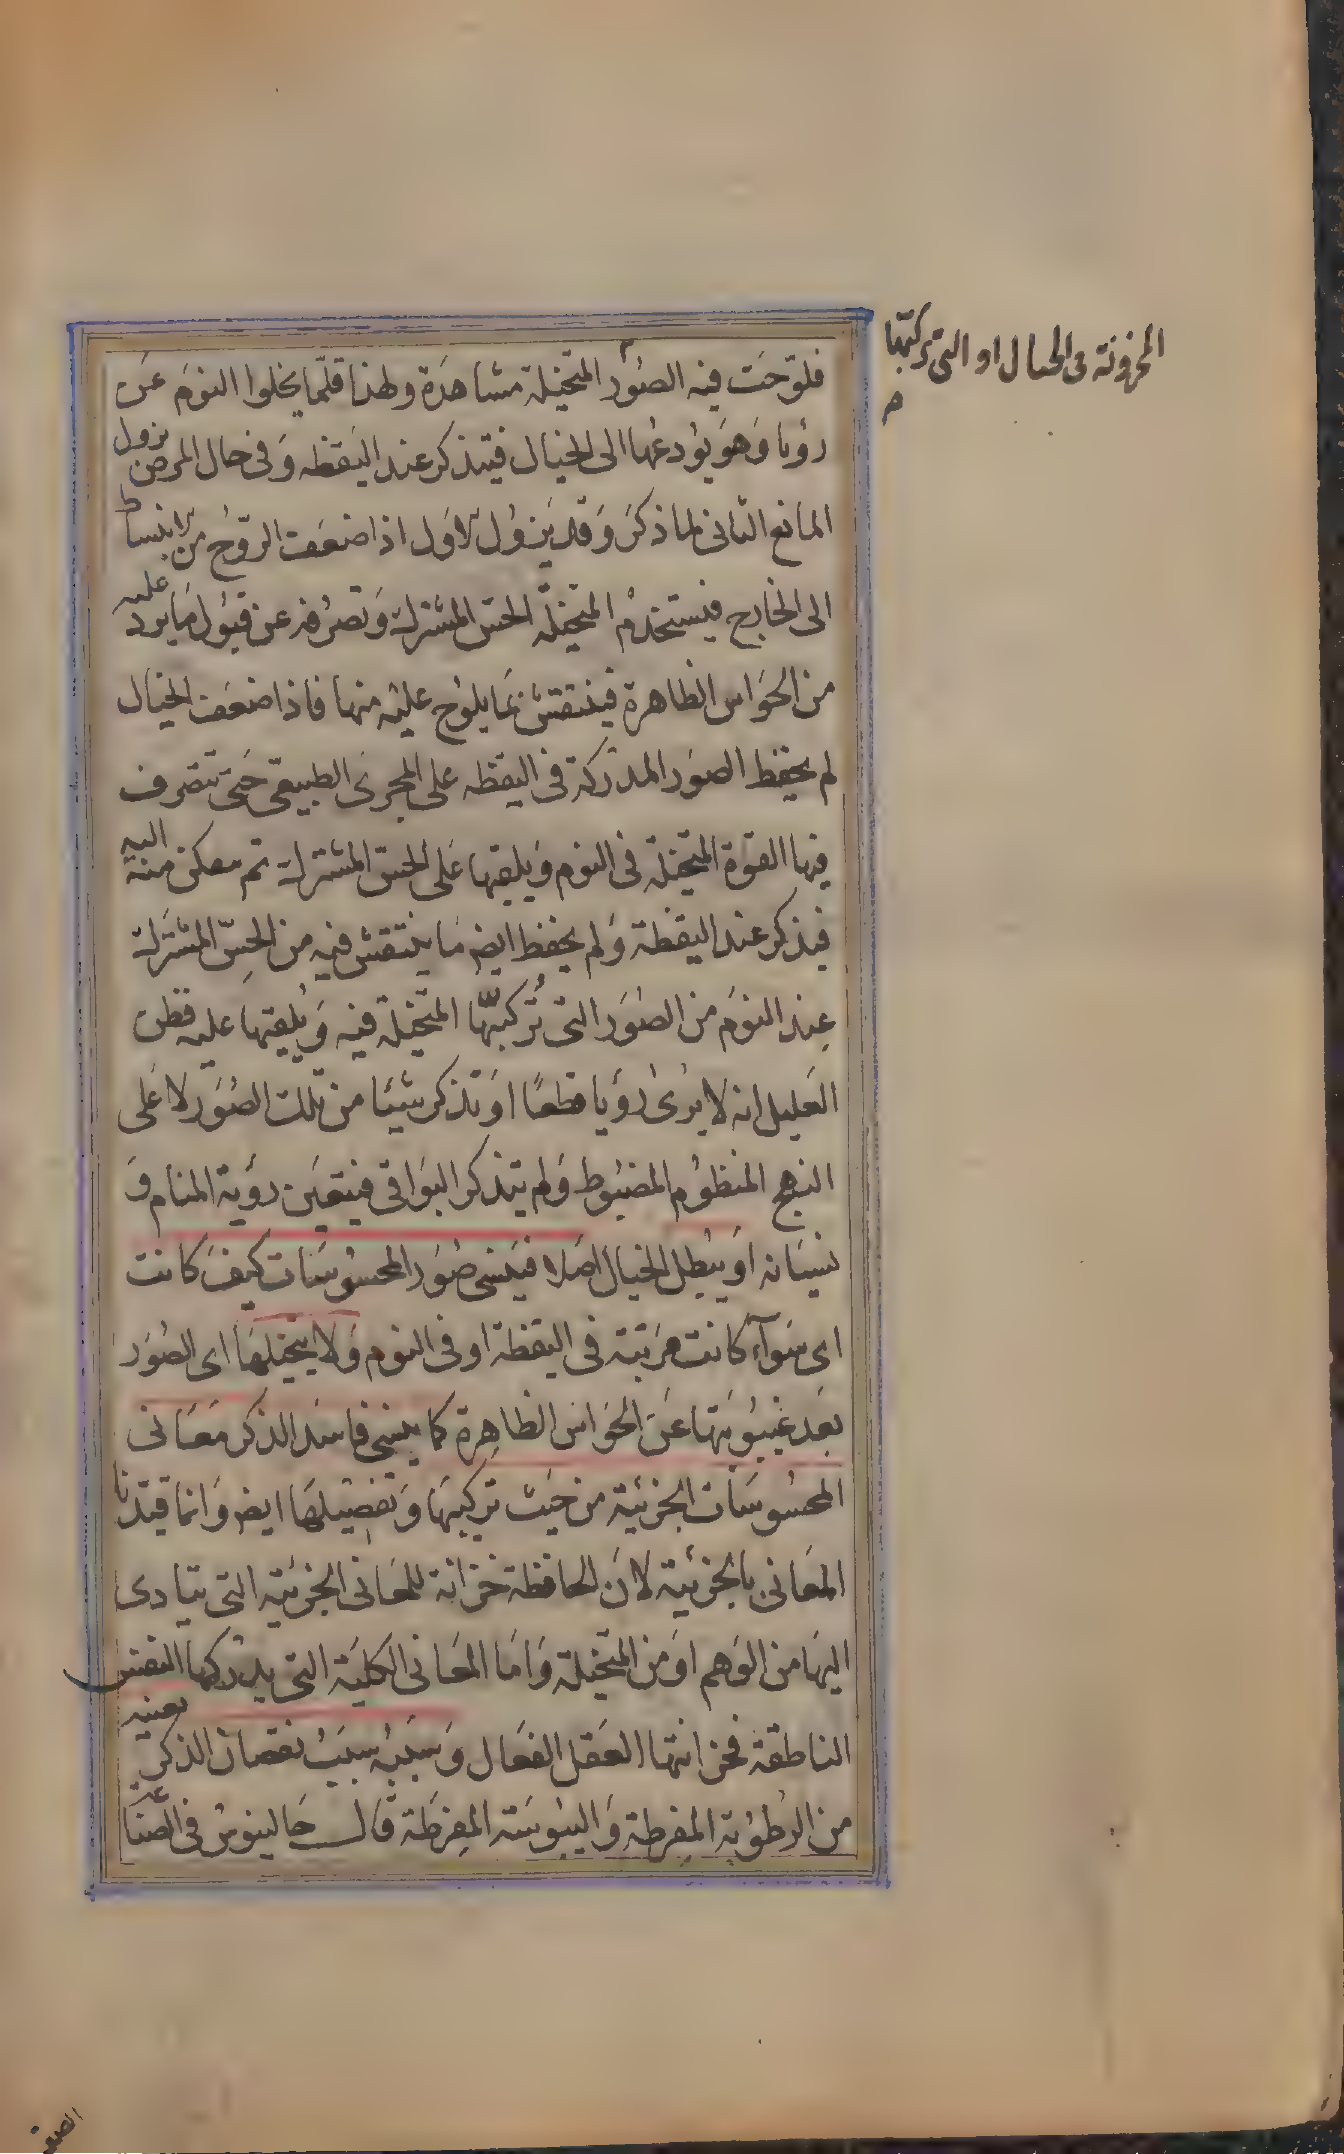 المخزونة فى الخيال او التى تركبّها
فلوّحت فيه الصُوَر المتخيلة مشاهدَة ولهذا قلّما يخلوا النومَ عَن
رؤيا وَهوَ يؤدعُها الى الخيال فيتذكر عند اليَقظه وَفى حال المرض يزول
المانع الثانى لما ذكرَ وَقد يَزوُل الاوَل اذا ضعَفت الروّح من الانبساط
الى الخارج فيستخدمُ المتخيلّة الحسّ المشترك وَتصرُفه عن قبوُل مَا يرد عليه
من الحوَاس الظاهرة فينتقش بمَا يلوُح عليْه منها فاذا ضعَفت الخيال
لم يحفظ الصوَر المدرَكة فى اليقظه على المجرَى الطبيعّى حَتى تتصّرف
فيها القوَّة المتخيّلة فى النوم وَيلقيها عَلى الحسّ المشترك ثم منه اليه
فيذكر عند اليقظة وَلم يحفظ ايضا مَا ينتقش فيه من الحِسّ المشترك
عِند النوَم من الصُوَر التى تُركبّها المتخيّلة فيه وَيُلقيها عليه فظن
العَليل انه لا يرىٰ رؤيا قطعًا اوَ تذكر شيئا من تلك الصُوَر لا عَلى
النهج المنظوُم المضبُوط وَلم يتذكر البوَاقى فيتعيّن رؤية المنام وَ
نسيَانه اوَ يبُطل الخيال اصَلا فيَنسى صُوَر المحسُوسَات كيفَ كانت
اى سَوآء كانت مرَئية فى اليقظة او فى النوم وَلا يتخيلهَا اى الصُوَر
بعَد غيبُوبَتها عَن الحوَاس الظاهِرة كما يَنسى فاسَد الذكر معَانى
المحسُوسَات الجزئية من حيَث تركيبهَا وَتفصيْلهَا ايضا وَانما قيّدنا
المعَانى بالجزئية لانَ الحافظة خزانة للمعَانى الجزئيه التى يتادى
اليهَا من الوَهم اوَ من المتخيلة وَامَا المعَانى الكليَة التى يدُركها النفس
الناطقة فخزانتها العقل الفعَال وَسَببُه سبَبُ نقصان الذكر بعينه
من الرُطوُبة المفرِطة وَاليبُوسَة المفرِطَة قال جالينوس فى الصنَاعة